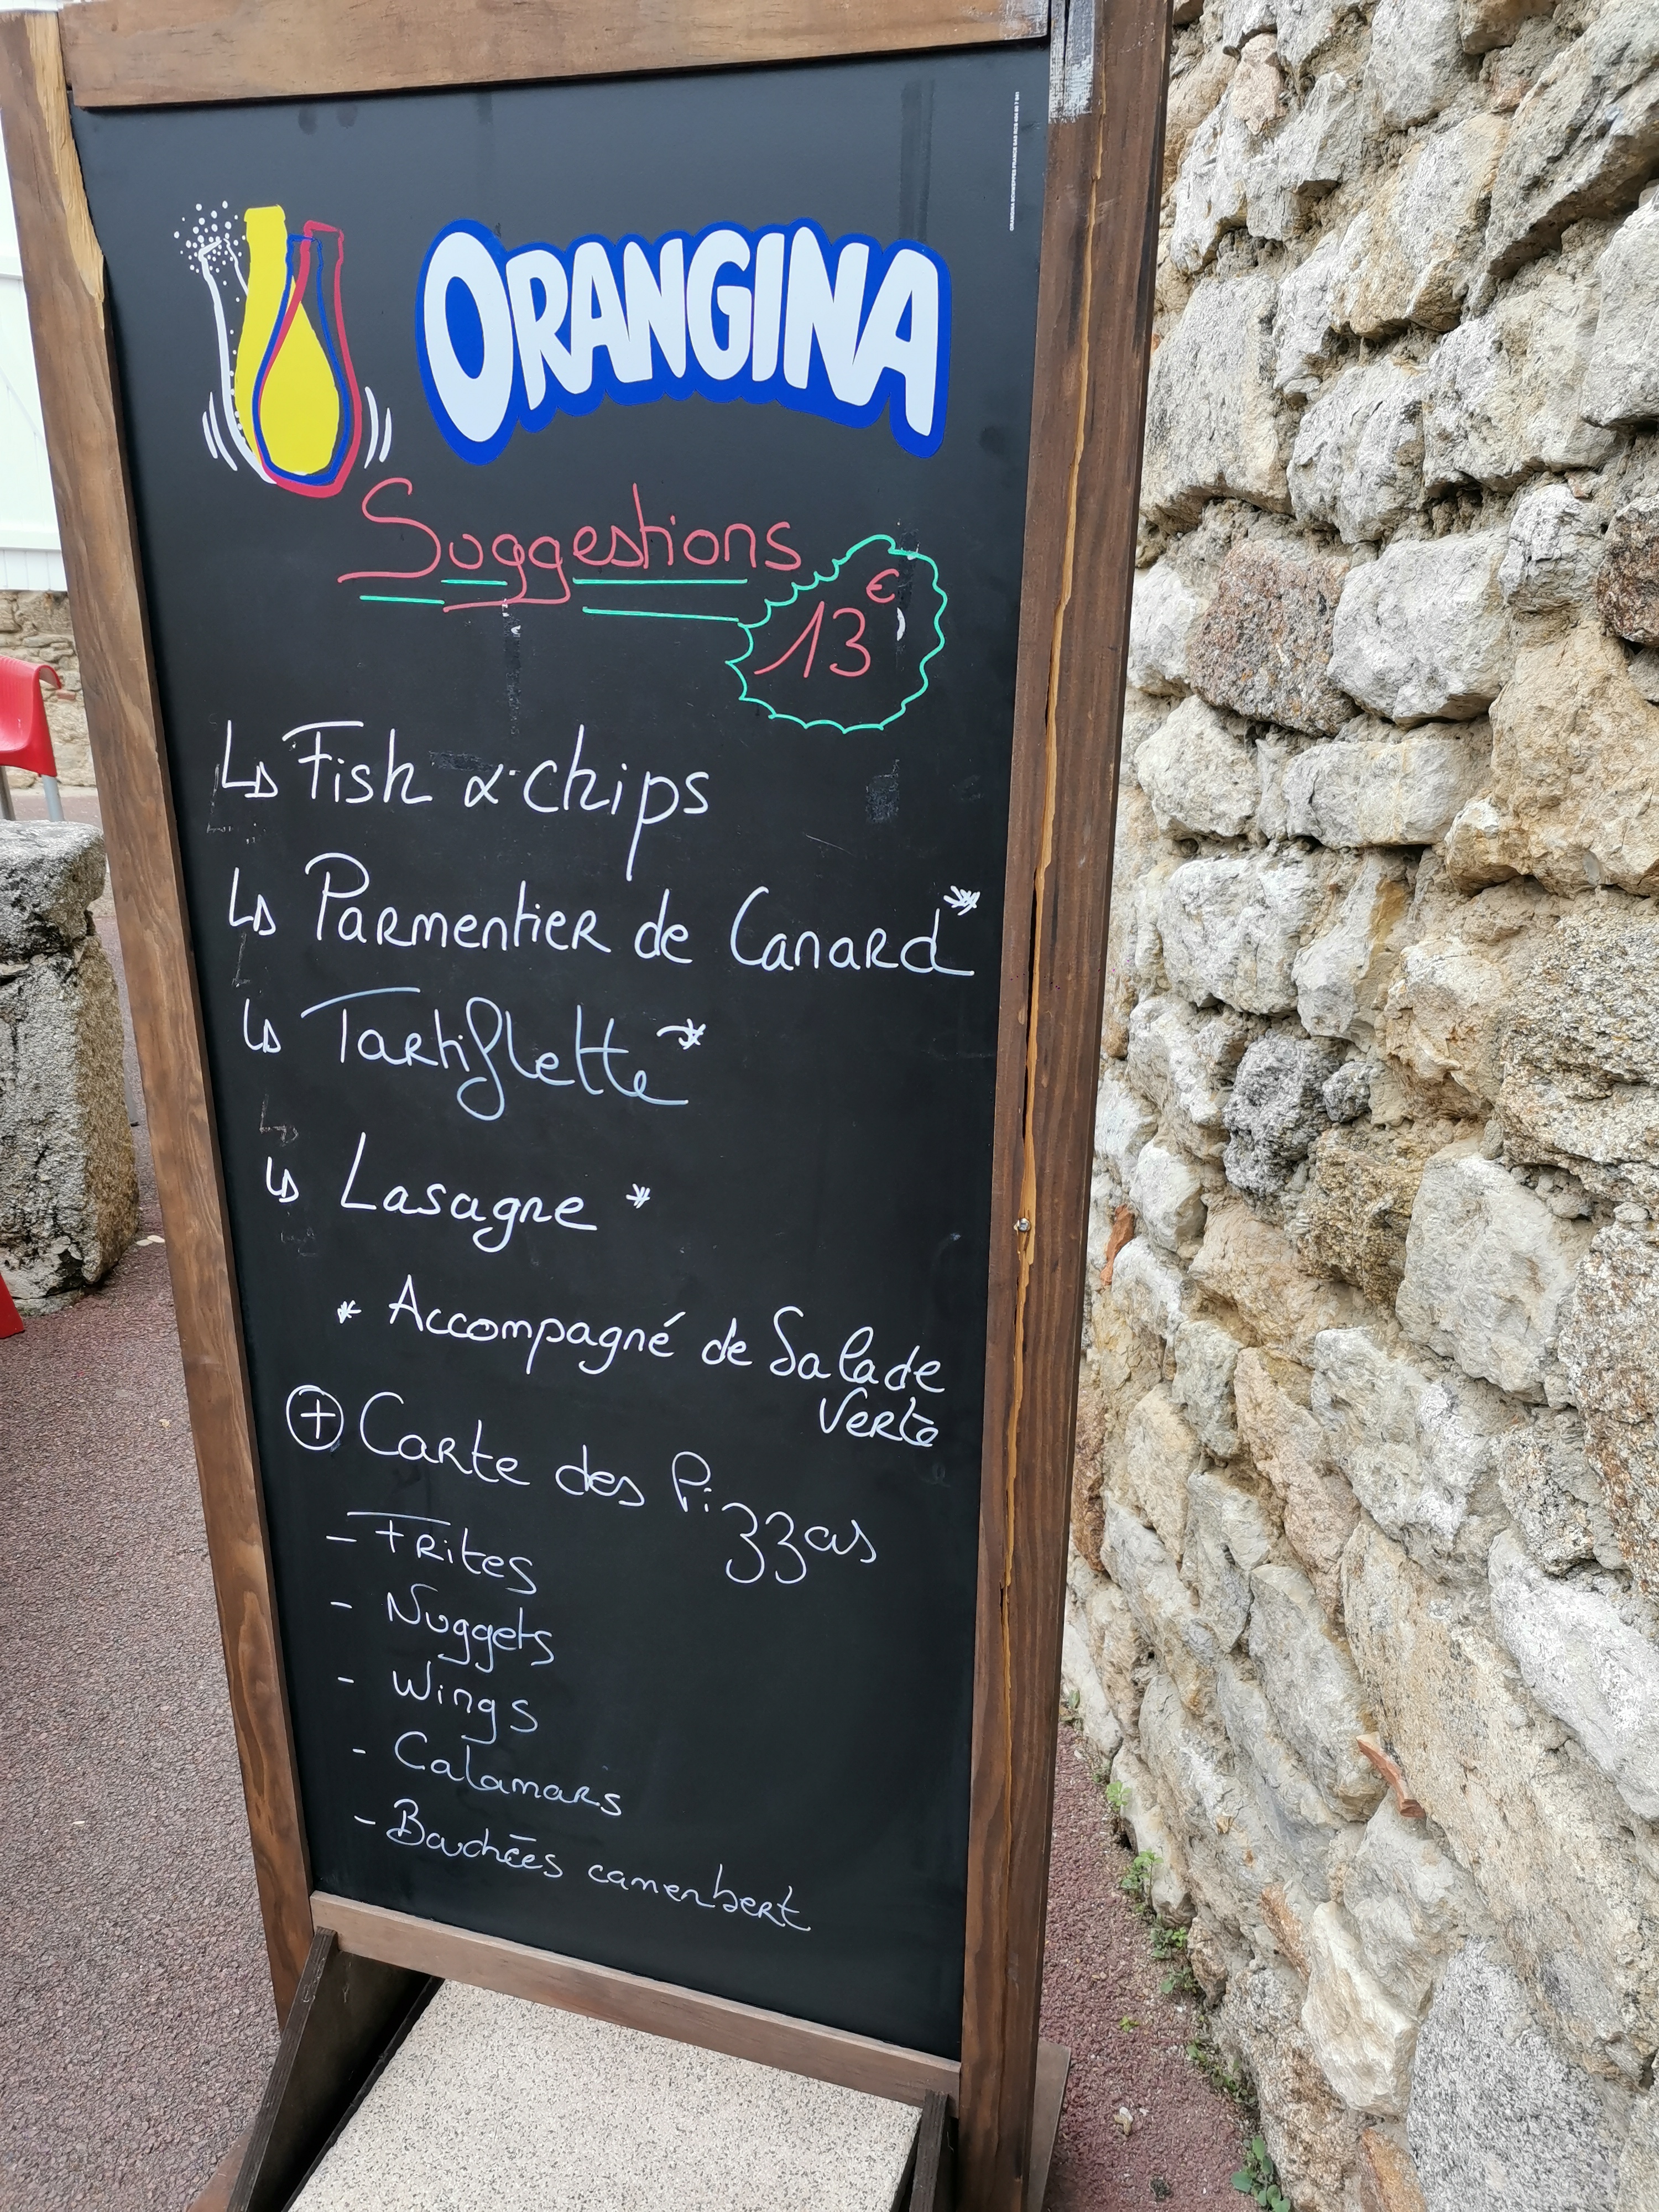 ORANGINA
Suggestions
13€
↳ Fish & chips
↳ Parmentier de Canard*
↳ Tartiflette *
↳ Lasagne *
* Accompagné de Salade
Verte
⊕ Carte des Pizzas
- Frites
- Nuggets
- Wings
- Calamars
- Bouchées camembert